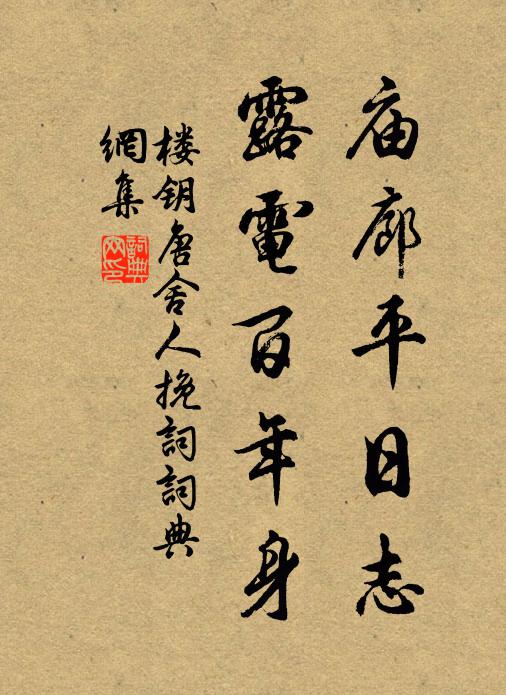 庙廊平日志
露電百年身
楼钥唐舍人挽詞詞典
網集
詞典
网印